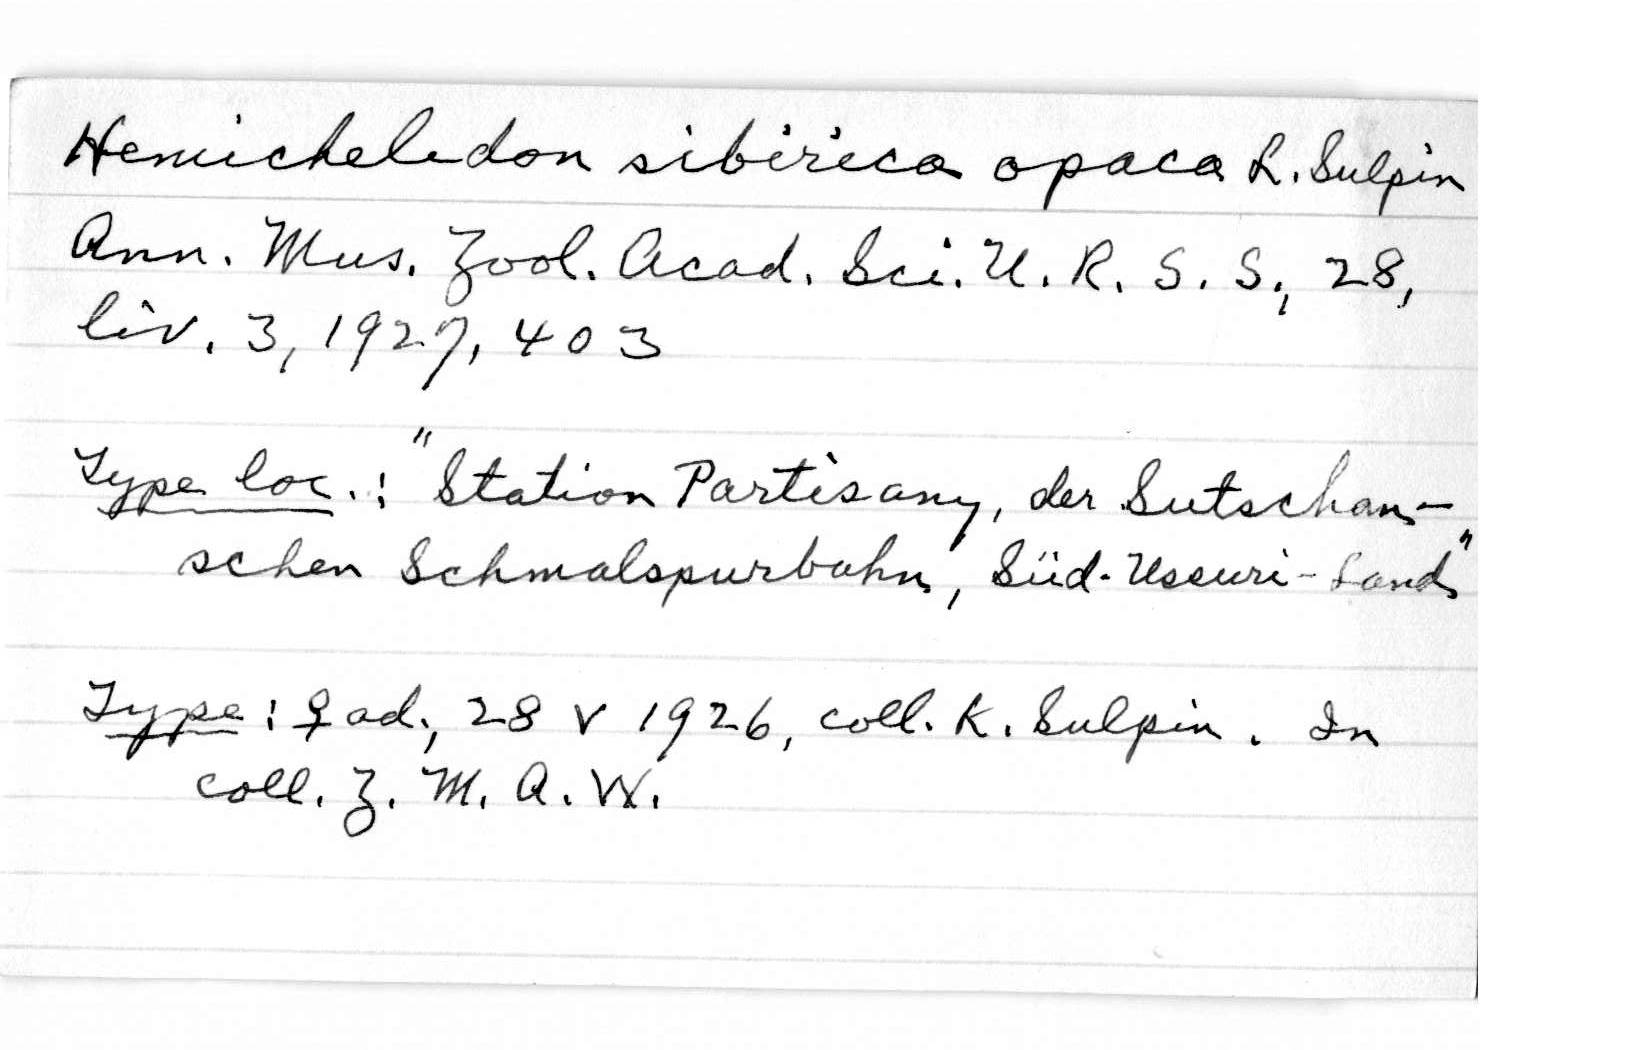 Hemichelidon sibirica opaca L. Sulpin
Ann. Mus. Zool. Acad. Sci. U. R. S. S., 28,
liv. 3, 1927, 403
Type loc.: "Station Partisany, der Sutschan-
schen Schmalspurbahn, Süd-Ussuri-Land"
Type: ♀ ad., 28 V 1926, coll. K. Sulpin. In
coll. Z. M. A. W.